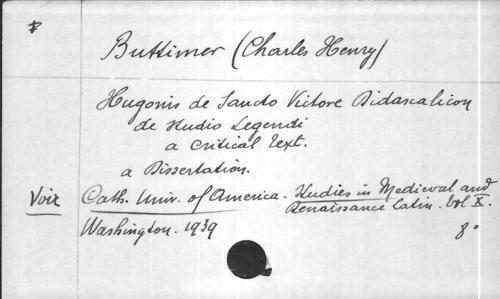 Buttimer (Charles Henry)
Hugonis de Sancto Victore Didascalicon
de Studio Legendi
a Critical Text.
a Dissertation.
Voir Cath. Univ. of America. Studies in Medieval and
Renaissance Latin. Vol X.
Washington. 1939 8°